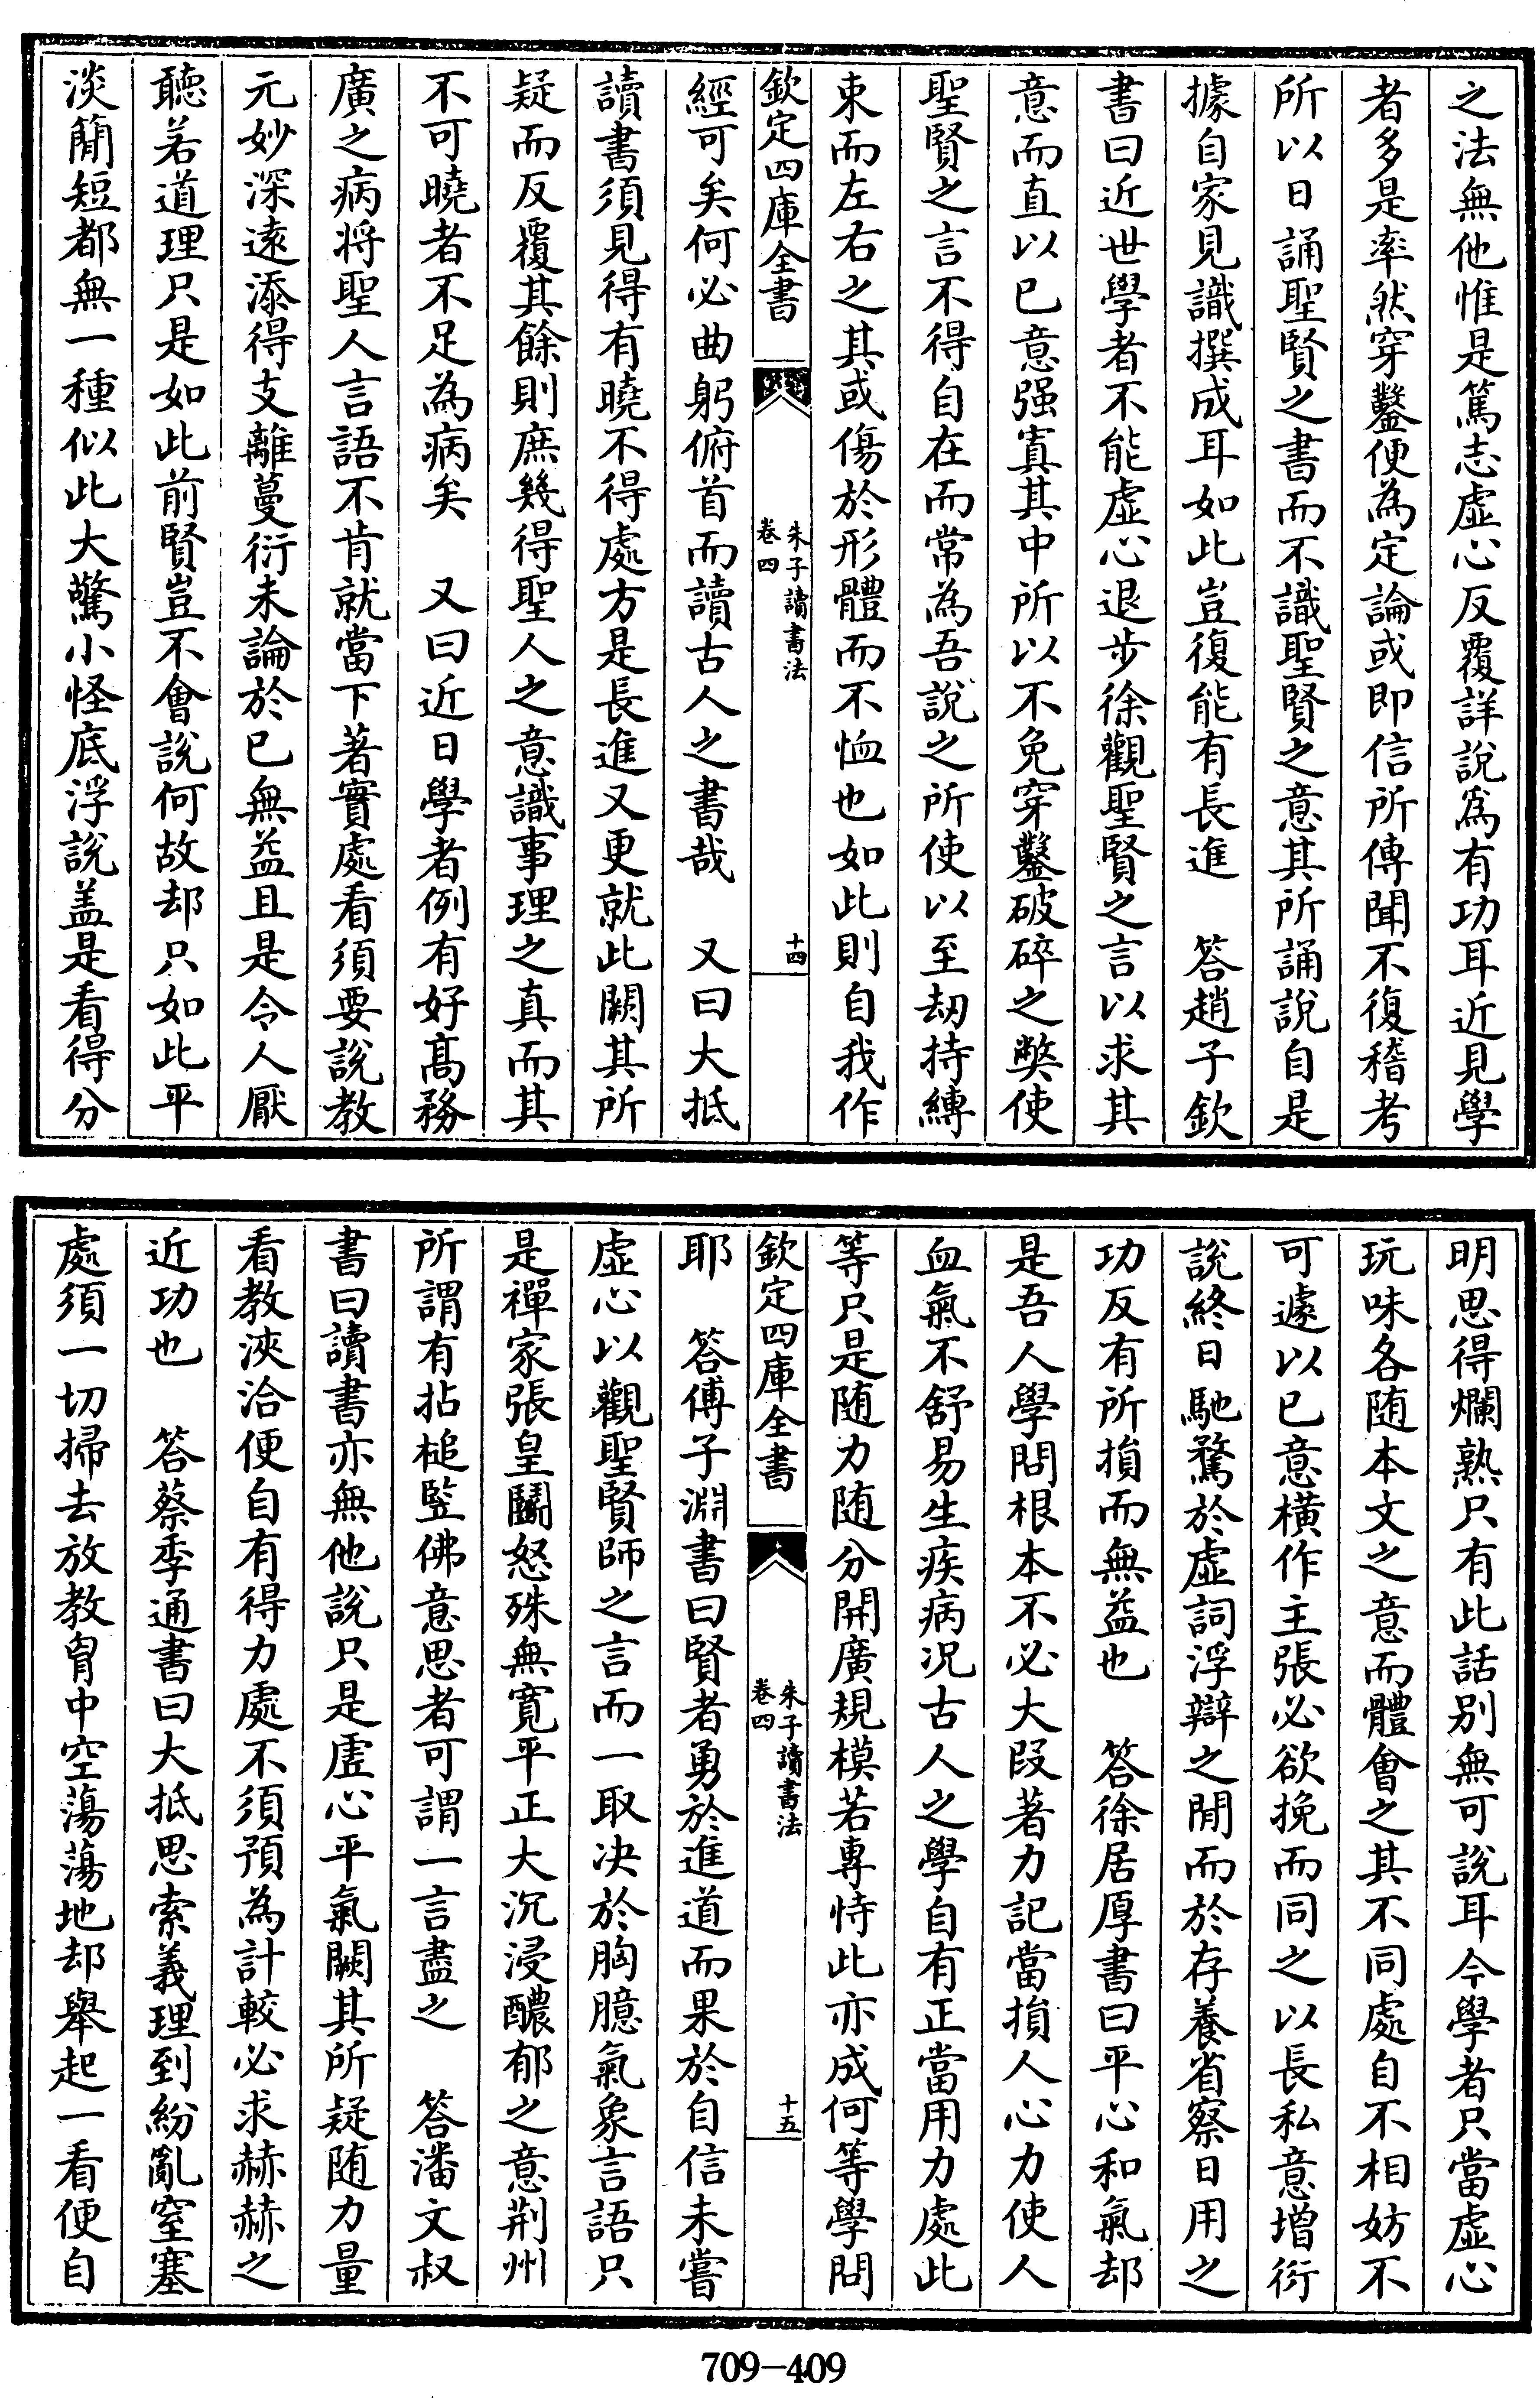 之法無他惟是篤志虛心反覆詳說為有功耳近見學
者多是率然穿鑿便為定論或即信所傳聞不復稽考
所以日誦聖賢之書而不識聖賢之意其所誦說自是
據自家見識撰成耳如此豈復能有長進　答趙子欽
書曰近世學者不能虛心退步徐觀聖賢之言以求其
意而直以已意强寘其中所以不免穿鑿破碎之弊使
聖賢之言不得自在而常為吾說之所使以至刼持縛
束而左右之其或傷於形體而不恤也如此則自我作
欽定四庫全書　朱子讀書法 卷四　十四
經可矣何必曲躬俯首而讀古人之書哉　又曰大抵
讀書須見得有曉不得處方是長進又更就此闕其所
疑而反覆其餘則庶幾得聖人之意識事理之真而其
不可曉者不足為病矣　又曰近日學者例有好髙務
廣之病將聖人言語不肯就當下著實處看須要說教
元妙深遠添得支離蔓衍未論於已無益且是令人厭
聽若道理只是如此前賢豈不會說何故却只如此平
淡簡短都無一種似此大驚小怪底浮說盖是看得分
明思得爛熟只有此話别無可說耳今學者只當虛心
玩味各随本文之意而體會之其不同處自不相妨不
可遽以已意橫作主張必欲挽而同之以長私意增衍
說終日馳騖於虛詞浮辯之間而於存養省察日用之
功反有所損而無益也　答徐居厚書曰平心和氣却
是吾人學問根本不必大段著力記當損人心力使人
血氣不舒易生疾病况古人之學自有正當用力處此
等只是随力随分開廣規模若專恃此亦成何等學問
欽定四庫全書　朱子讀書法 卷四　十五
耶　答傅子淵書曰賢者勇於進道而果於自信未嘗
虛心以觀聖賢師之言而一取决於胸臆氣象言語只
是禪家張皇鬬怒殊無寛平正大沉浸醲郁之意荆州
所謂有拈槌竪佛意思者可謂一言盡之　答潘文叔
書曰讀書亦無他說只是虛心平氣闕其所疑随力量
看教浹洽便自有得力處不須預為計較必求赫赫之
近功也　答蔡季通書曰大抵思索義理到紛亂窒塞
處須一切掃去放教胷中空蕩蕩地却舉起一看便自
709-409